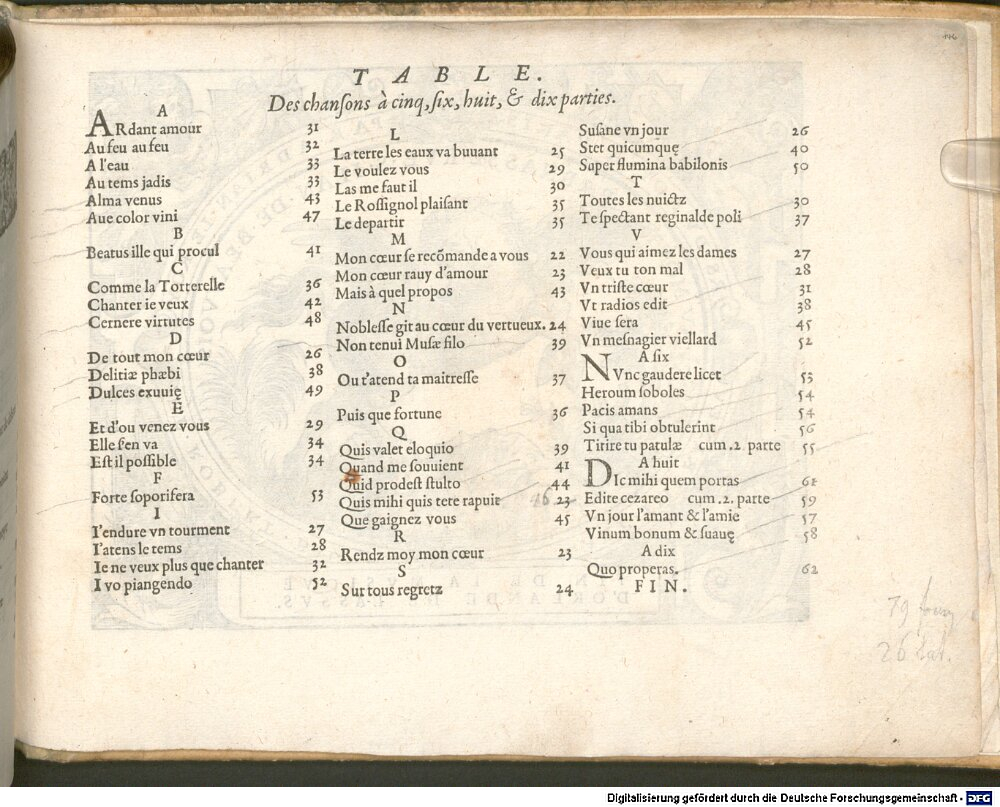 TABLE.
Des chanſons à cinq, ſix, huit, & dix parties.
A
ARdant amour 31
Au feu au feu 32
A l'eau 33
Au tems jadis 33
Alma venus 43
Aue color vini 47
B
Beatus ille qui procul 41
C
Comme la Torterelle 36
Chanter ie veux 42
Cernere virtutes 48
D
De tout mon cœur 26
Delitiæ phæbi 38
Dulces exuuię 49
E
Et d'ou venez vous 29
Elle ſ'en va 34
Eſt il poſſible 34
F
Forte ſoporifera 53
I
I'endure vn tourment 27
I'atens le tems 28
Ie ne veux plus que chanter 32
I vo piangendo 52
L
La terre les eaux va buuant 25
Le voulez vous 29
Las me faut il 30
Le Roſſignol plaiſant 35
Le departir 35
M
Mon cœur ſe recõmande a vous 22
Mon cœur rauy d'amour 23
Mais à quel propos 43
N
Nobleſſe git au cœur du vertueux. 24
Non tenui Muſæ filo 39
O
Ou t'atend ta maitreſſe 37
P
Puis que fortune 36
Q
Quis valet eloquio 39
Quand me ſouuient 41
Quid prodeſt ſtulto 44
Quis mihi quis tete rapuit 46 23
Que gaignez vous 45
R
Rendz moy mon cœur 23
S
Sur tous regretz 24
Suſane vn jour 26
Stet quicumquę 40
Super flumina babilonis 50
T
Toutes les nuictz 30
Te ſpectant reginalde poli 37
V
Vous qui aimez les dames 27
Veux tu ton mal 28
Vn triſte cœur 31
Vt radios edit 38
Viue ſera 45
Vn meſnagier viellard 52
A ſix
NVnc gaudere licet 53
Heroum ſoboles 54
Pacis amans 54
Si qua tibi obtulerint 56
Titire tu patulæ cum .2. parte 55
A huit
DIc mihi quem portas 61
Edite cezareo cum .2. parte 59
Vn jour l'amant & l'amie 57
Vinum bonum & ſuauę 58
A dix
Quo properas. 62
FIN.
26 Lat.
Digitalisierung gefördert durch die Deutsche Forschungsgemeinschaft - DFG